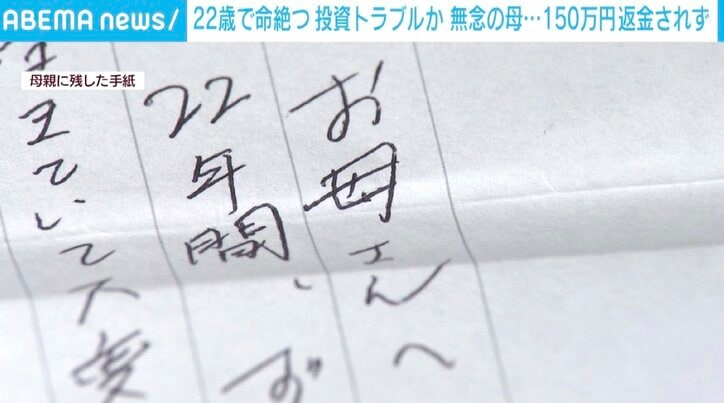 ABEMA news/
22歳で命絶つ 投資トラブルか 無念の母…150万円返金されず
母親に残した手紙
お母さんへ
22年間、ず
生きていて大変